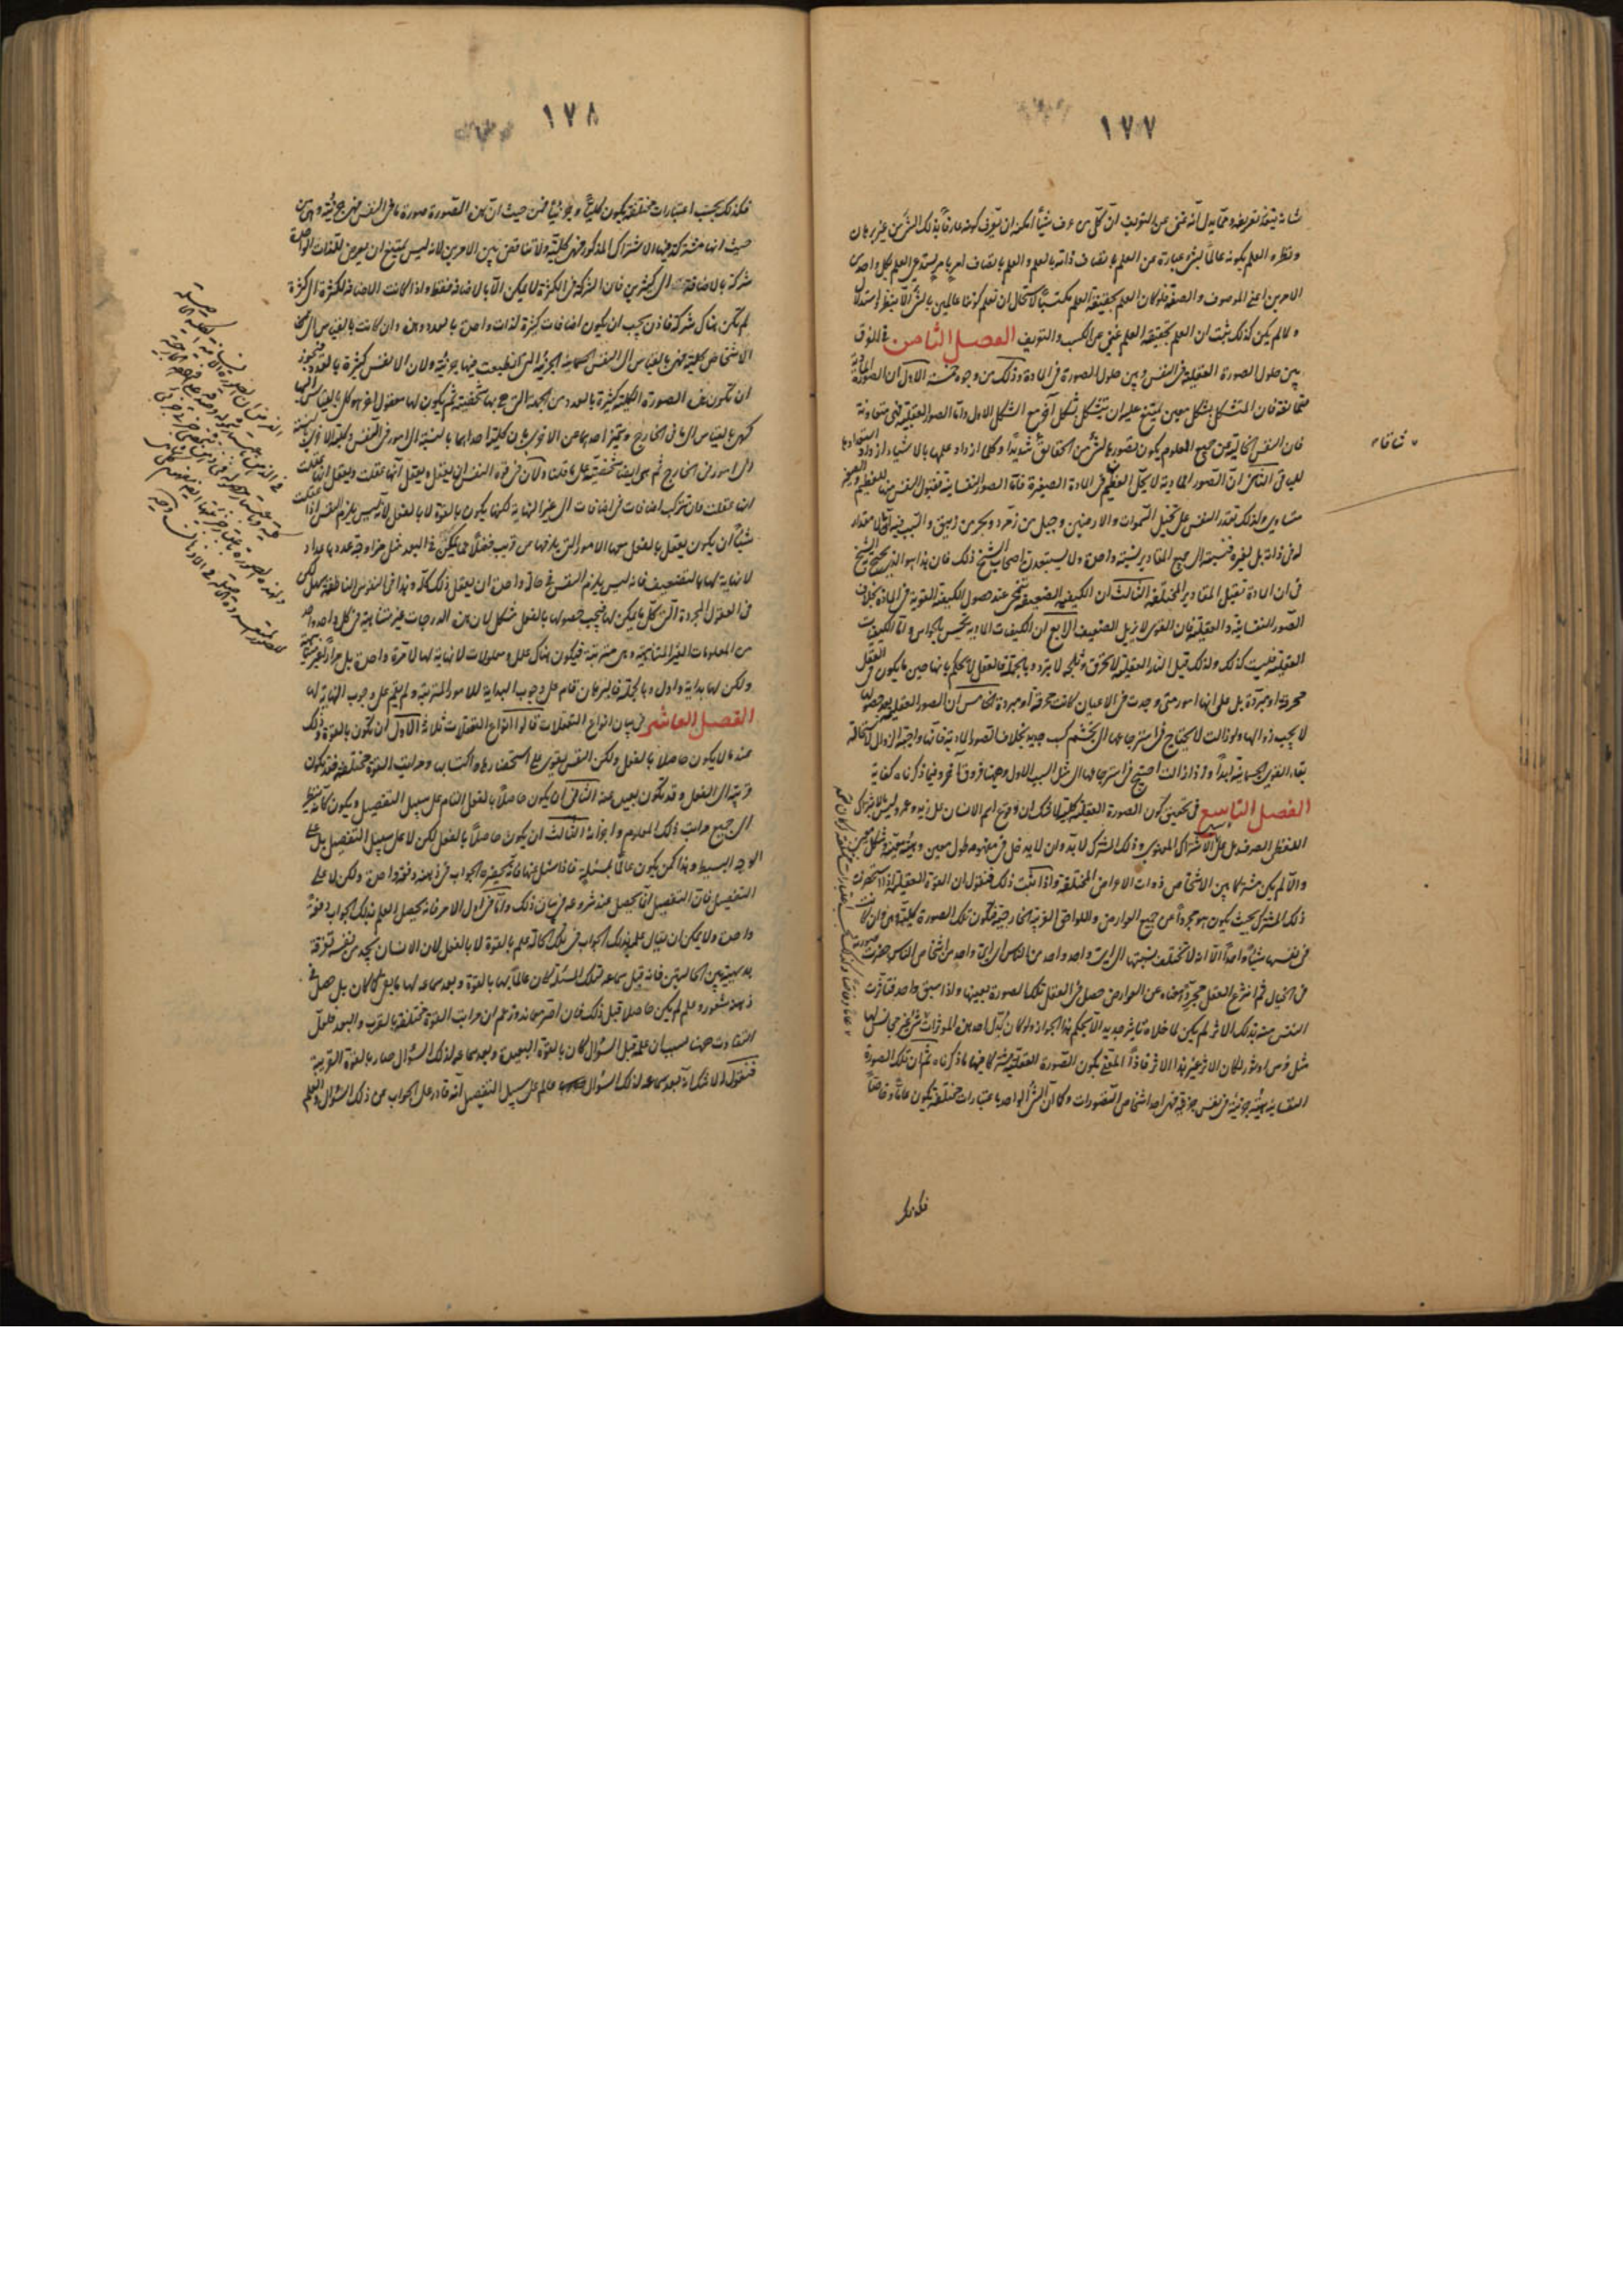 ١٧٧
شانه يمتنع تعريفه ومما يدل انه غنى عن التعريف ان كل من عرف شيئا امكنه ان يعرف كونه عارفا بذلك الشئ من غير برهان
ونظر والعلم بكونه عالما بشئ عبارة عن العلم باتصاف ذاته بالعلم والعلم باتصاف امر بامر يستدعى العلم بكل واحد من
الامرين اعنى الموصوف والصفة فلو كان العلم بحقيقة العلم مكتسبا لاستحال ان نعلم كوننا عالمين بالشئ الا بنظر واستدلال
ولما لم يكن كذلك ثبت ان العلم بحقيقة العلم غنى عن الكسب والتعريف الفصل الثامن فى الفرق
بين حلول الصورة العقلية فى النفس وبين حلول الصورة فى المادة وذلك من وجوه خمسة الاول ان الصور المادية
متمانعة فان المتشكل بشكل معين يمتنع عليه ان يتشكل بشكل آخر مع الشكل الاول واما الصور العقلية فهى متعاونة
فان النفس الخالية عن جميع العلوم يكون تصورها لشئ من الحقائق شديدا وكلما ازداد علمها بالاشياء ازداد استعدادها
للباقى الثانى ان الصور المادية لا يحل العظيم فى المادة الصغيرة فاما الصور النفسانية فقبول النفس منها للعظيم والصغير
متساوى ولذلك تقدر النفس على تخيل السموات والارضين وجبل من زمرد وبحر من زيبق والسبب فيه ان لا مقدار
له فى ذاته بل لغيره فنسبته الى جميع المقادير بنسبة واحدة ولا يستبعدن اصحاب الشيخ ذلك فان هذا هو الذى يحتج به الشيخ
فى ان المادة تقبل المقادير المختلفة الثالث ان الكيفية الضعيفة تنمحى عند حصول الكيفية القوية فى المادة بخلاف
الصور النفسانية والعقلية فان القوى لا يزيل الضعيف الرابع ان الكيفيات المادية تحس بالحواس واما الكيفيات
العقلية فليست كذلك ولذلك قيل النار العقلية لا تحرق وثلجه لا يبرد وبالجملة فالعقل لا يحكم بانها حين ما يكون فى العقل
محرقة او مبردة بل على انها امور متى وجدت فى الاعيان كانت محرقة او مبردة الخامس ان الصور العقلية بعد حصولها
لا يجب زوالها ولو زالت لا يحتاج فى استرجاعها الى تجشم كسب جديد بخلاف الصور المادية فانها واجبة الزوال لاستحالة
بقاء القوى الجسمانية ابدا واذا زالت احتيج فى استرجاعها الى مثل السبب الاول وههنا فروق اخر وفيما ذكرناه كفاية
الفصل التاسع فى تحقيق كون الصورة العقلية كلية لا شك ان وقوع اسم الانسان على زيد وعمرو ليس لاشتراك
اللفظ الصرف بل على الاشتراك المعنوى وذلك المشترك لا بد وان لا يدخل فى مفهومه طول معين وهيئة معينة وشكل معين
والا لم يكن مشتركا بين الاشخاص ذوات الاعراض المختلفة واذا ثبت ذلك فنقول ان القوة العقلية اذا استحضرت
ذلك المشترك بحيث يكون هو مجردا عن جميع العوارض واللواحق الغريبة الخارجية فتكون تلك الصورة كلية وهى وان كانت
فى نفسها شيئا واحدا الا انه لا تختلف نسبتها الى اى واحد واحد من الناس اذ اى واحد من اشخاص الناس حضرت صورته
فى الخيال ثم انتزع العقل مجرد معناه عن العوارض حصل فى العقل تلك الصورة بعينها واذا سبق واحد فتأثرت
النفس منه بذلك الاثر لم يكن لما خلاه تاثير جديد الا بحكم هذا الجواز ولو كان بدل احد هذه المؤثرات شئ غير مجانس لها
مثل فرس او ثور لكان الاثر غير هذا الاثر فاذا المعنى بكون الصورة العقلية مشتركا فيها ما ذكرناه ثم ان تلك الصورة
النفسانية هيئة جزئية فى نفس جزئية فهى احد اشخاص التصورات وكما ان الشئ الواحد باعتبارات مختلفة يكون عاما وخاصا
فكذلك
١٧٨
فكذلك بحسب اعتبارات مختلفة يكون كليا وجزئيا فمن حيث ان هذه الصورة صورة ما فى النفس فهى جزئية وهى من
حيث انها مشتركة فيها الاشتراك المذكور فهى كلية ولا تناقض بين الامرين لانه ليس يمتنع ان يعرض للذات الواحدة
شركة بالاضافة الى كثيرين فان الشركة فى الكثرة لا يمكن الا بالاضافة فقط واذا كانت الاضافة لكثرة الى كثرة
لم تكن هناك شركة فاذن يجب ان يكون اضافات كثيرة لذات واحدة بالعدد وهذه وان كانت بالقياس الى هذه
الاشخاص كلية فهى بالقياس الى النفس الجسمانية الجزئية التى انطبعت فيها جزئية ولان الانفس كثيرة بالعدد فيجوز
ان تكون هذه الصورة الكلية كثيرة بالعدد من الجهة التى هى بها شخصية ثم يكون لها معقول آخر هو كلى بالقياس اليها
كهى بالقياس الى ما فى الخارج ويتميز احدهما عن الاخرى بان كلية احداهما بالنسبة الى امور فى النفس وكلية الاخرى بالنسبة
الى امور فى الخارج ثم هى ايضا شخصية على ما قلنا ولان فى قوة النفس ان يعقل ويعقل انها عقلت ويعقل انها عقلت
انها عقلت وان تركب اضافات فى اضافات الى غير النهاية لكنها يكون بالقوة لا بالفعل لانه ليس يلزم النفس اذا عقلت
شيئا ان يكون يعقل بالفعل معها الامور التى يلزمها من قريب فضلا عما يمكن فى البعد مثل مزاوجة عدد باعداد
لا نهاية لها بالتضعيف فانه ليس يلزم النفس فى حالة واحدة ان يعقل ذلك كله وهذا فى النفوس الناطقة سهل لكن
فى العقول المجردة التى كل ما يمكن لها فيجب حصولها بالفعل مشكل لان هذه الدرجات غير متناهية فى كل واحد واحد
من المعلومات الغير المتناهية وهى مترتبة فيكون هناك علل ومعلولات لا نهاية لها لا مرة واحدة بل مرارا غير متناهية
ولكن لها بداية واول وبالجملة فالبرهان قام على وجوب البداية للامور المترتبة ولم يقم على وجوب النهاية لها
الفصل العاشر فى بيان انواع التعقلات قالوا انواع التعقلات ثلاثة الاول ان تكون بالقوة وذلك
عند ما لا يكون حاصلا بالفعل ولكن النفس يقوى على استحضارها واكتسابه ومراتب القوة مختلفة فقد يكون
قريبة الى الفعل وقد تكون بعيدة عنه الثانى ان يكون حاصلا بالفعل التام على سبيل التفصيل ويكون كانه ينظر
الى جميع مراتب ذلك المعلوم واجزائه الثالث ان يكون حاصلا بالفعل لكن لا على سبيل التفصيل بل على
الوجه البسيط وهذا كمن يكون عالما بمسئلة فاذا سئل عنها فانه يحضره الجواب فى ذهنه دفعة واحدة ولكن لا على
التفصيل فان التفصيل انما يحصل عند شروعه فى بيان ذلك واما فى اول الامر فانه يحصل العلم بذلك الجواب دفعة
واحدة ولا يمكن ان يقال علمه بذلك الجواب فى تلك الحالة علم بالقوة لا بالفعل لان الانسان يجد من نفسه تفرقة
بديهية بين الحالتين فانه قبل سماعه لتلك المسئلة كان عالما بها بالقوة وبعد سماعه لها ما بقى كما كان بل حصل فى
ذهنه شعور وعلم لم يكن حاصلا قبل ذلك فان اصر معاند وزعم ان مراتب القوة مختلفة بالقرب والبعد فلعل
التفاوت ههنا بسبب ان علمه قبل السؤال كان بالقوة البعيدة وبعد سماعه لذلك السؤال صار بالقوة القريبة
فنقول لا شك انه بعد سماعه لذلك السؤال عالم على سبيل التفصيل انه قادر على الجواب عن ذلك السؤال والعلم